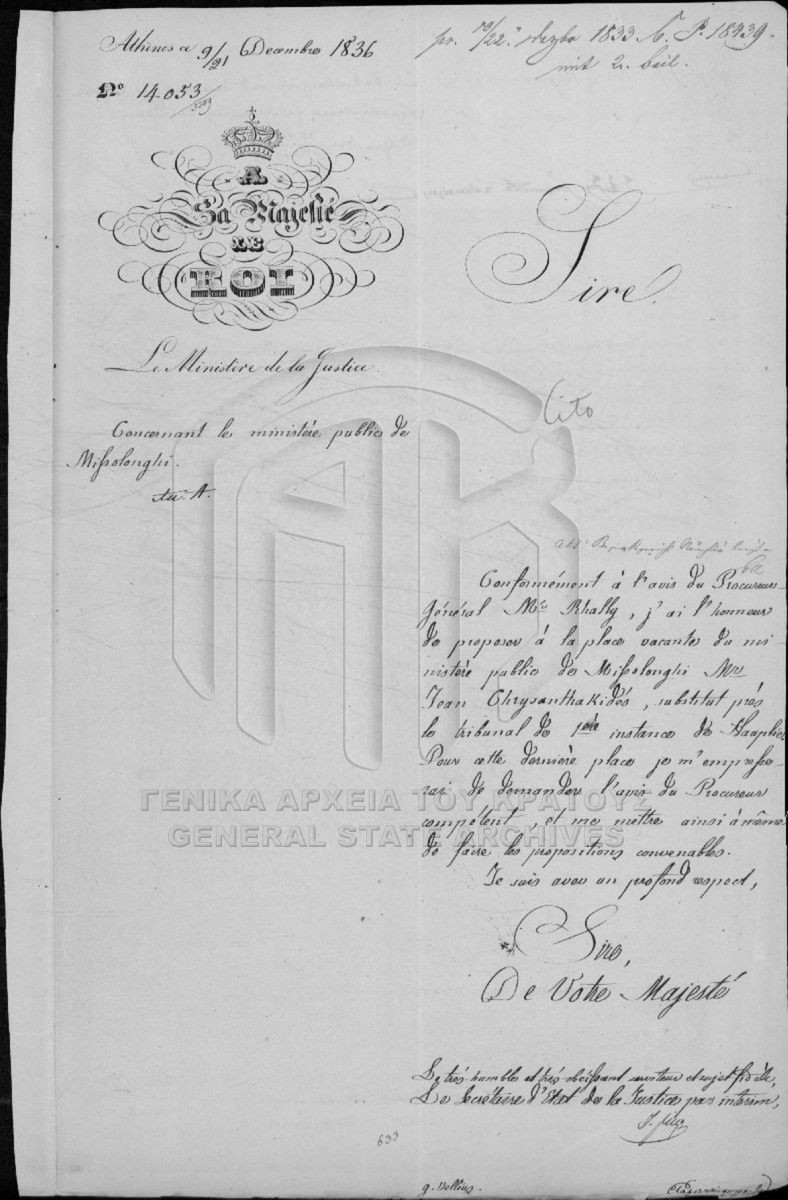 Athènes ce 9/21 Decembre 1836
pr. 10/22 dezbr 1833 6. P. 18439.
mit 2. beil.
No 14053/
A
Sa Majesté
LE
ROI
Sire.
Le Ministère de la Justice.
Cito
Concernant le ministère public de
Missolonghi.
Conformément à l'avis du Procureur-
général Mr. Rhally, j'ai l'honneur
de proposer à la place vacante du mi-
nistère public de Missolonghi Mr
Jean Chrysanthakidès, substitut près
le tribunal de 1ère instance de Nauplie.
Pour cette dernière place je m'empresse-
rai de demander l'avis du Procureur
compétent, et me mettre ainsi à même
de faire les propositions convenables.
Je suis avec un profond respect,
Sire,
De Votre Majesté
Le très humble et très obéissant serviteur et sujet fidèle,
Le Secrétaire d'Etat de la Justice par interim,
633
ΓΕΝΙΚΑ ΑΡΧΕΙΑ ΤΟΥ ΚΡΑΤΟΥΣ
GENERAL STATE ARCHIVES